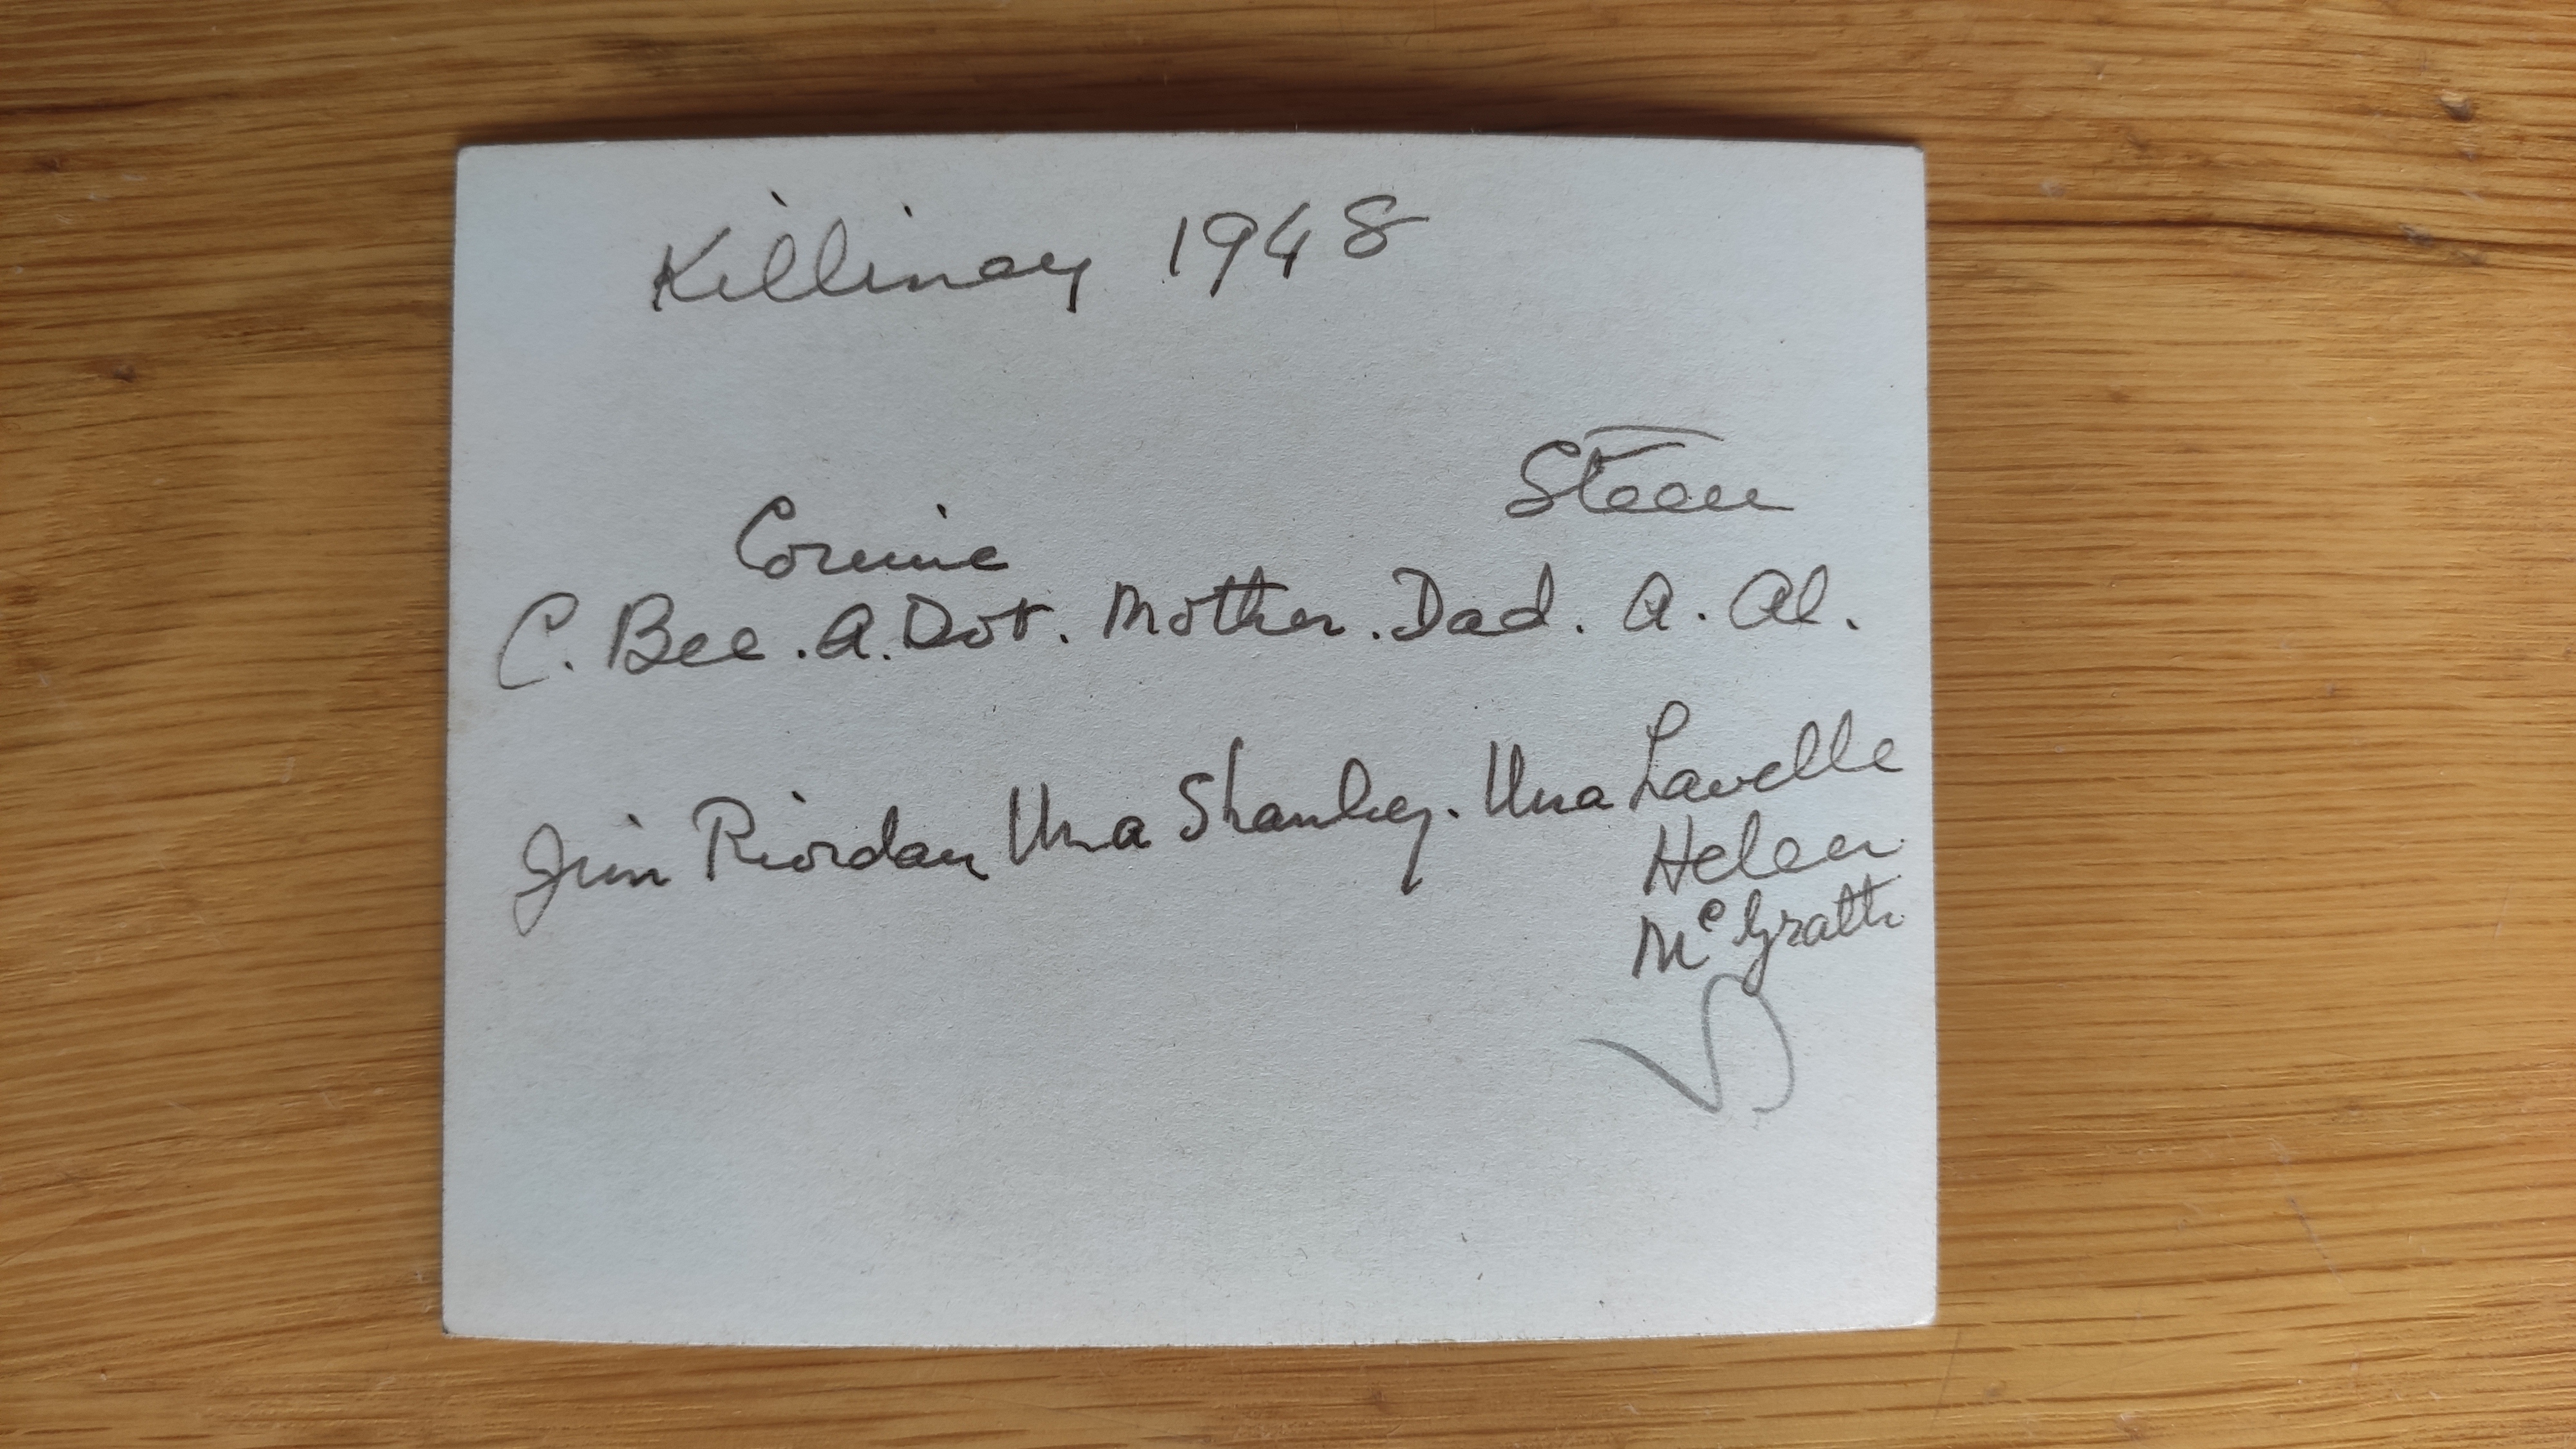 Killiney 1948
Steen
Corinne
C. Bee. A. Dot. Mother. Dad. A. Al.
Jim Riordan Una Shanley. Una Lavelle
Helen
McGrath